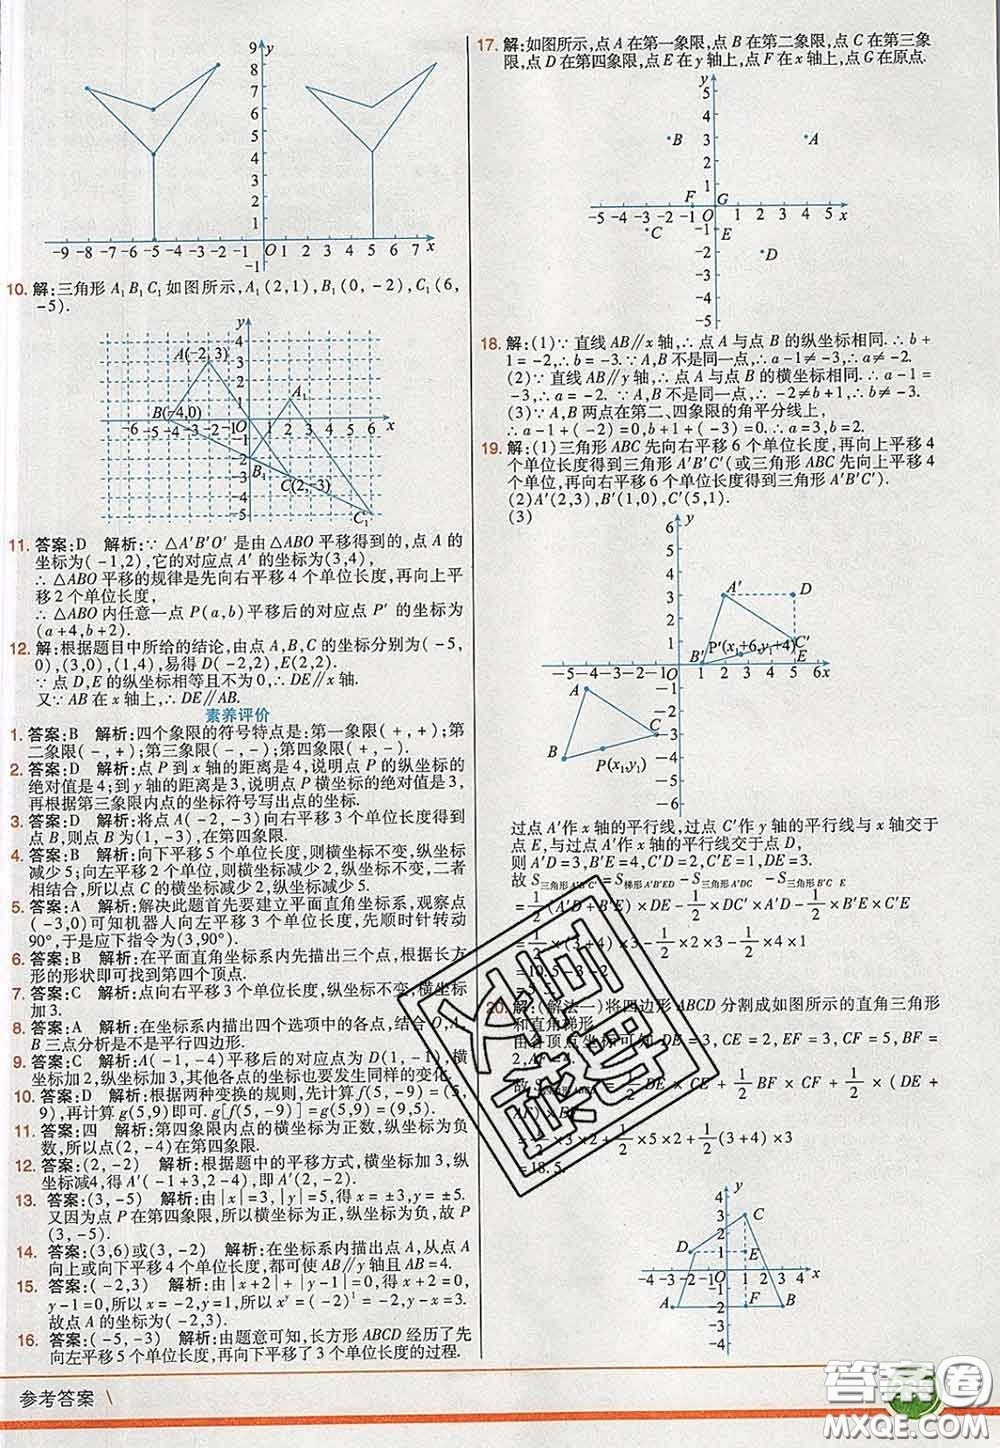 10. 解:三角形 A₁B₁C₁ 如图所示,A₁(2,1),B₁(0,-2),C₁(6,
-5).
A(-2,3)
B(-4,0)
C(2,-3)
11. 答案:D 解析:∵△A'B'O' 是由△ABO平移得到的,点 A 的
坐标为(-1,2),它的对应点 A' 的坐标为(3,4),
∴△ABO 平移的规律是先向右平移 4 个单位长度,再向上平
移 2 个单位长度,
∴△ABO 内任意一点 P(a,b)平移后的对应点 P' 的坐标为
(a+4,b+2).
12. 解:根据题目中所给的结论,由点 A,B,C 的坐标分别为(-5,
0),(3,0),(1,4),易得 D(-2,2),E(2,2).
∵点 D,E 的纵坐标相等且不为 0,∴DE∥x 轴.
又∵AB 在 x 轴上,∴DE∥AB.
素养评价
1. 答案:B 解析:四个象限的符号特点是:第一象限(+,+);第
二象限(-,+);第三象限(-,-);第四象限(+,-).
2. 答案:D 解析:点 P 到 x 轴的距离是 4,说明点 P 的纵坐标的
绝对值是 4;到 y 轴的距离是 3,说明点 P 横坐标的绝对值是 3,
再根据第三象限内点的坐标符号写出点的坐标.
3. 答案:D 解析:将点 A(-2,-3)向右平移 3 个单位长度得到
点 B,则点 B 为(1,-3),在第四象限.
4. 答案:B 解析:向下平移 5 个单位长度,则横坐标不变,纵坐标
减少 5;向左平移 2 个单位,则横坐标减少 2,纵坐标不变,二者
相结合,所以点 C 的横坐标减少 2,纵坐标减少 5.
5. 答案:A 解析:解决此题首先要建立平面直角坐标系,观察点
(-3,0)可知机器人向左平移 3 个单位长度,先顺时针转动
90°,于是应下指令为(3,90°).
6. 答案:B 解析:在平面直角坐标系内先描出三个点,根据长方
形的形状即可找到第四个顶点.
7. 答案:C 解析:点向右平移 3 个单位长度,纵坐标不变,横坐标
加 3.
8. 答案:A 解析:在坐标系内描出四个选项中的各点,结合 O,A,
B 三点分析是不是平行四边形.
9. 答案:C 解析:A(-1,-4)平移后的对应点为 D(1,-1),横
坐标加 2,纵坐标加 3,其他各点的坐标也要发生同样的变化.
10. 答案:D 解析:根据两种变换的规则,先计算 f(5,-9)=(5,
9),再计算 g(5,9)即可.g[f(5,-9)]=g(5,9)=(9,5).
11. 答案:四 解析:第四象限内点的横坐标为正数,纵坐标为负
数,所以点(2,-4)在第四象限.
12. 答案:(2,-2) 解析:根据题中的平移方式,横坐标加 3,纵
坐标减 4,得 A'(-1+3,2-4),即 A'(2,-2).
13. 答案:(3,-5) 解析:由|x|=3,|y|=5,得 x=±3,y=±5.
又因为点 P 在第四象限,所以横坐标为正,纵坐标为负,故 P
(3,-5).
14. 答案:(3,6)或(3,-2) 解析:在坐标系内描出点 A,从点 A
向上或向下平移 4 个单位长度,都可使 AB∥y 轴且 AB=4.
15. 答案:(-2,3) 解析:由|x+2|+|y-1|=0,得 x+2=0,
y-1=0,所以 x=-2,y=1,所以 xʸ=(-2)¹=-2,y-x=3.
故点 A 的坐标为(-2,3).
16. 答案:(-5,-3) 解析:由题意可知,长方形 ABCD 经历了先
向左平移 5 个单位长度,再向下平移了 3 个单位长度的过程.
17. 解:如图所示,点 A 在第一象限,点 B 在第二象限,点 C 在第三象
限,点 D 在第四象限,点 E 在 y 轴上,点 F 在 x 轴上,点 G 在原点.
18. 解:(1)∵直线 AB∥x 轴,∴点 A 与点 B 的纵坐标相同.∴b+
1=-2,∴b=-3.∵A,B 不是同一点,∴a-1≠-3,∴a≠-2.
(2)∵直线 AB∥y 轴,∴点 A 与点 B 的横坐标相同.∴a-1=
-3,∴a=-2.∵A,B 不是同一点,∴-2≠b+1,∴b≠-3.
(3)∵A,B 两点在第二、四象限的角平分线上,
∴a-1+(-2)=0,b+1+(-3)=0.∴a=3,b=2.
19. 解:(1)三角形 ABC 先向右平移 6 个单位长度,再向上平移 4
个单位长度得到三角形 A'B'C'(或三角形 ABC 先向上平移 4
个单位,再向右平移 6 个单位长度得到三角形 A'B'C').
(2)A'(2,3),B'(1,0),C'(5,1).
(3)
P'(x₁+6,y₁+4)
P(x₁,y₁)
过点 A'作 x 轴的平行线,过点 C'作 y 轴的平行线与 x 轴交于
点 E,与过点 A'作 x 轴的平行线交于点 D,
则 A'D=3,B'E=4,C'D=2,C'E=1,DE=3.
故 S三角形A'B'C'=S梯形A'B'ED-S三角形A'DC'-S三角形B'C'E
=1/2(A'D+B'E)×DE-1/2×DC'×A'D-1/2×B'E×C'E
=1/2×(3+4)×3-1/2×2×3-1/2×4×1
=10.5-3-2
20. 解:(解法一)将四边形 ABCD 分割成如图所示的直角三角形
和直角梯形.
由各顶点坐标可知 DE=3,CE=2,EF=3,CF=5,BF=
2,AF=4.
DE×CE+1/2 BF×CF+1/2×(DE+
AF)×
=1/2×3×2+1/2×5×2+1/2(3+4)×3
=18.5.
参考答案
答案圈
MXQE.COM